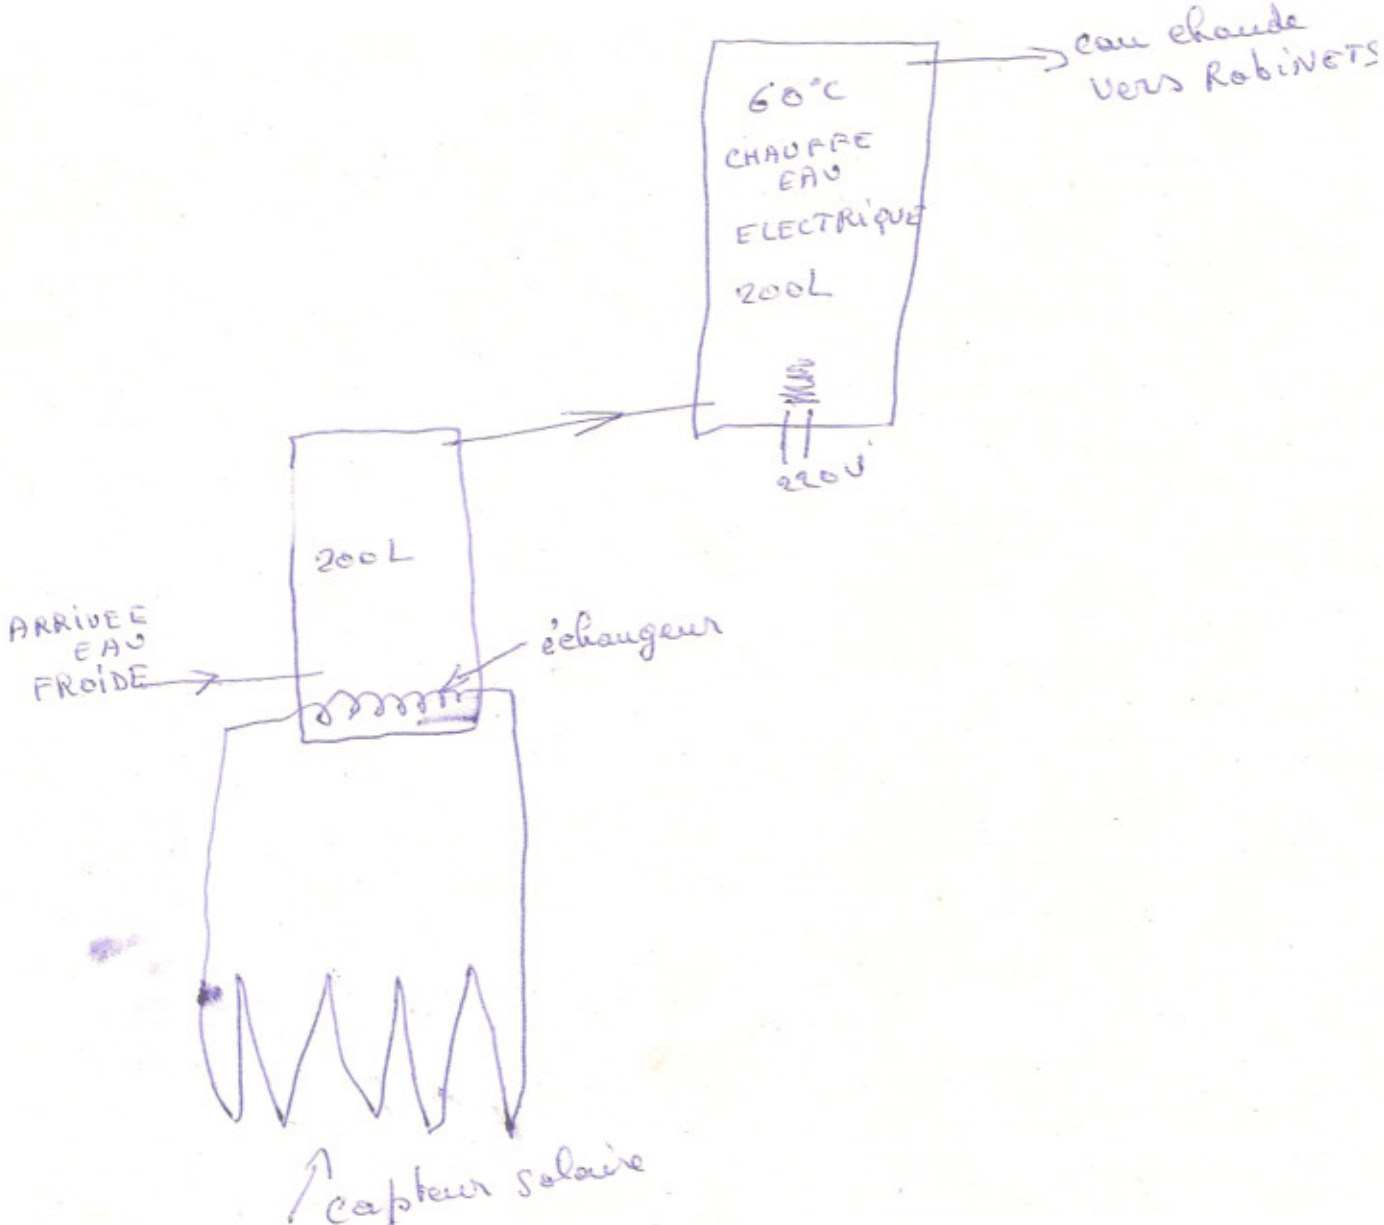 eau chaude
vers RobiNETS
60°C
CHAUFFE
EAU
ELECTRiQUE
200L
220V
200L
ARRiVEE
EAU
FROiDE
échangeur
capteur solaire